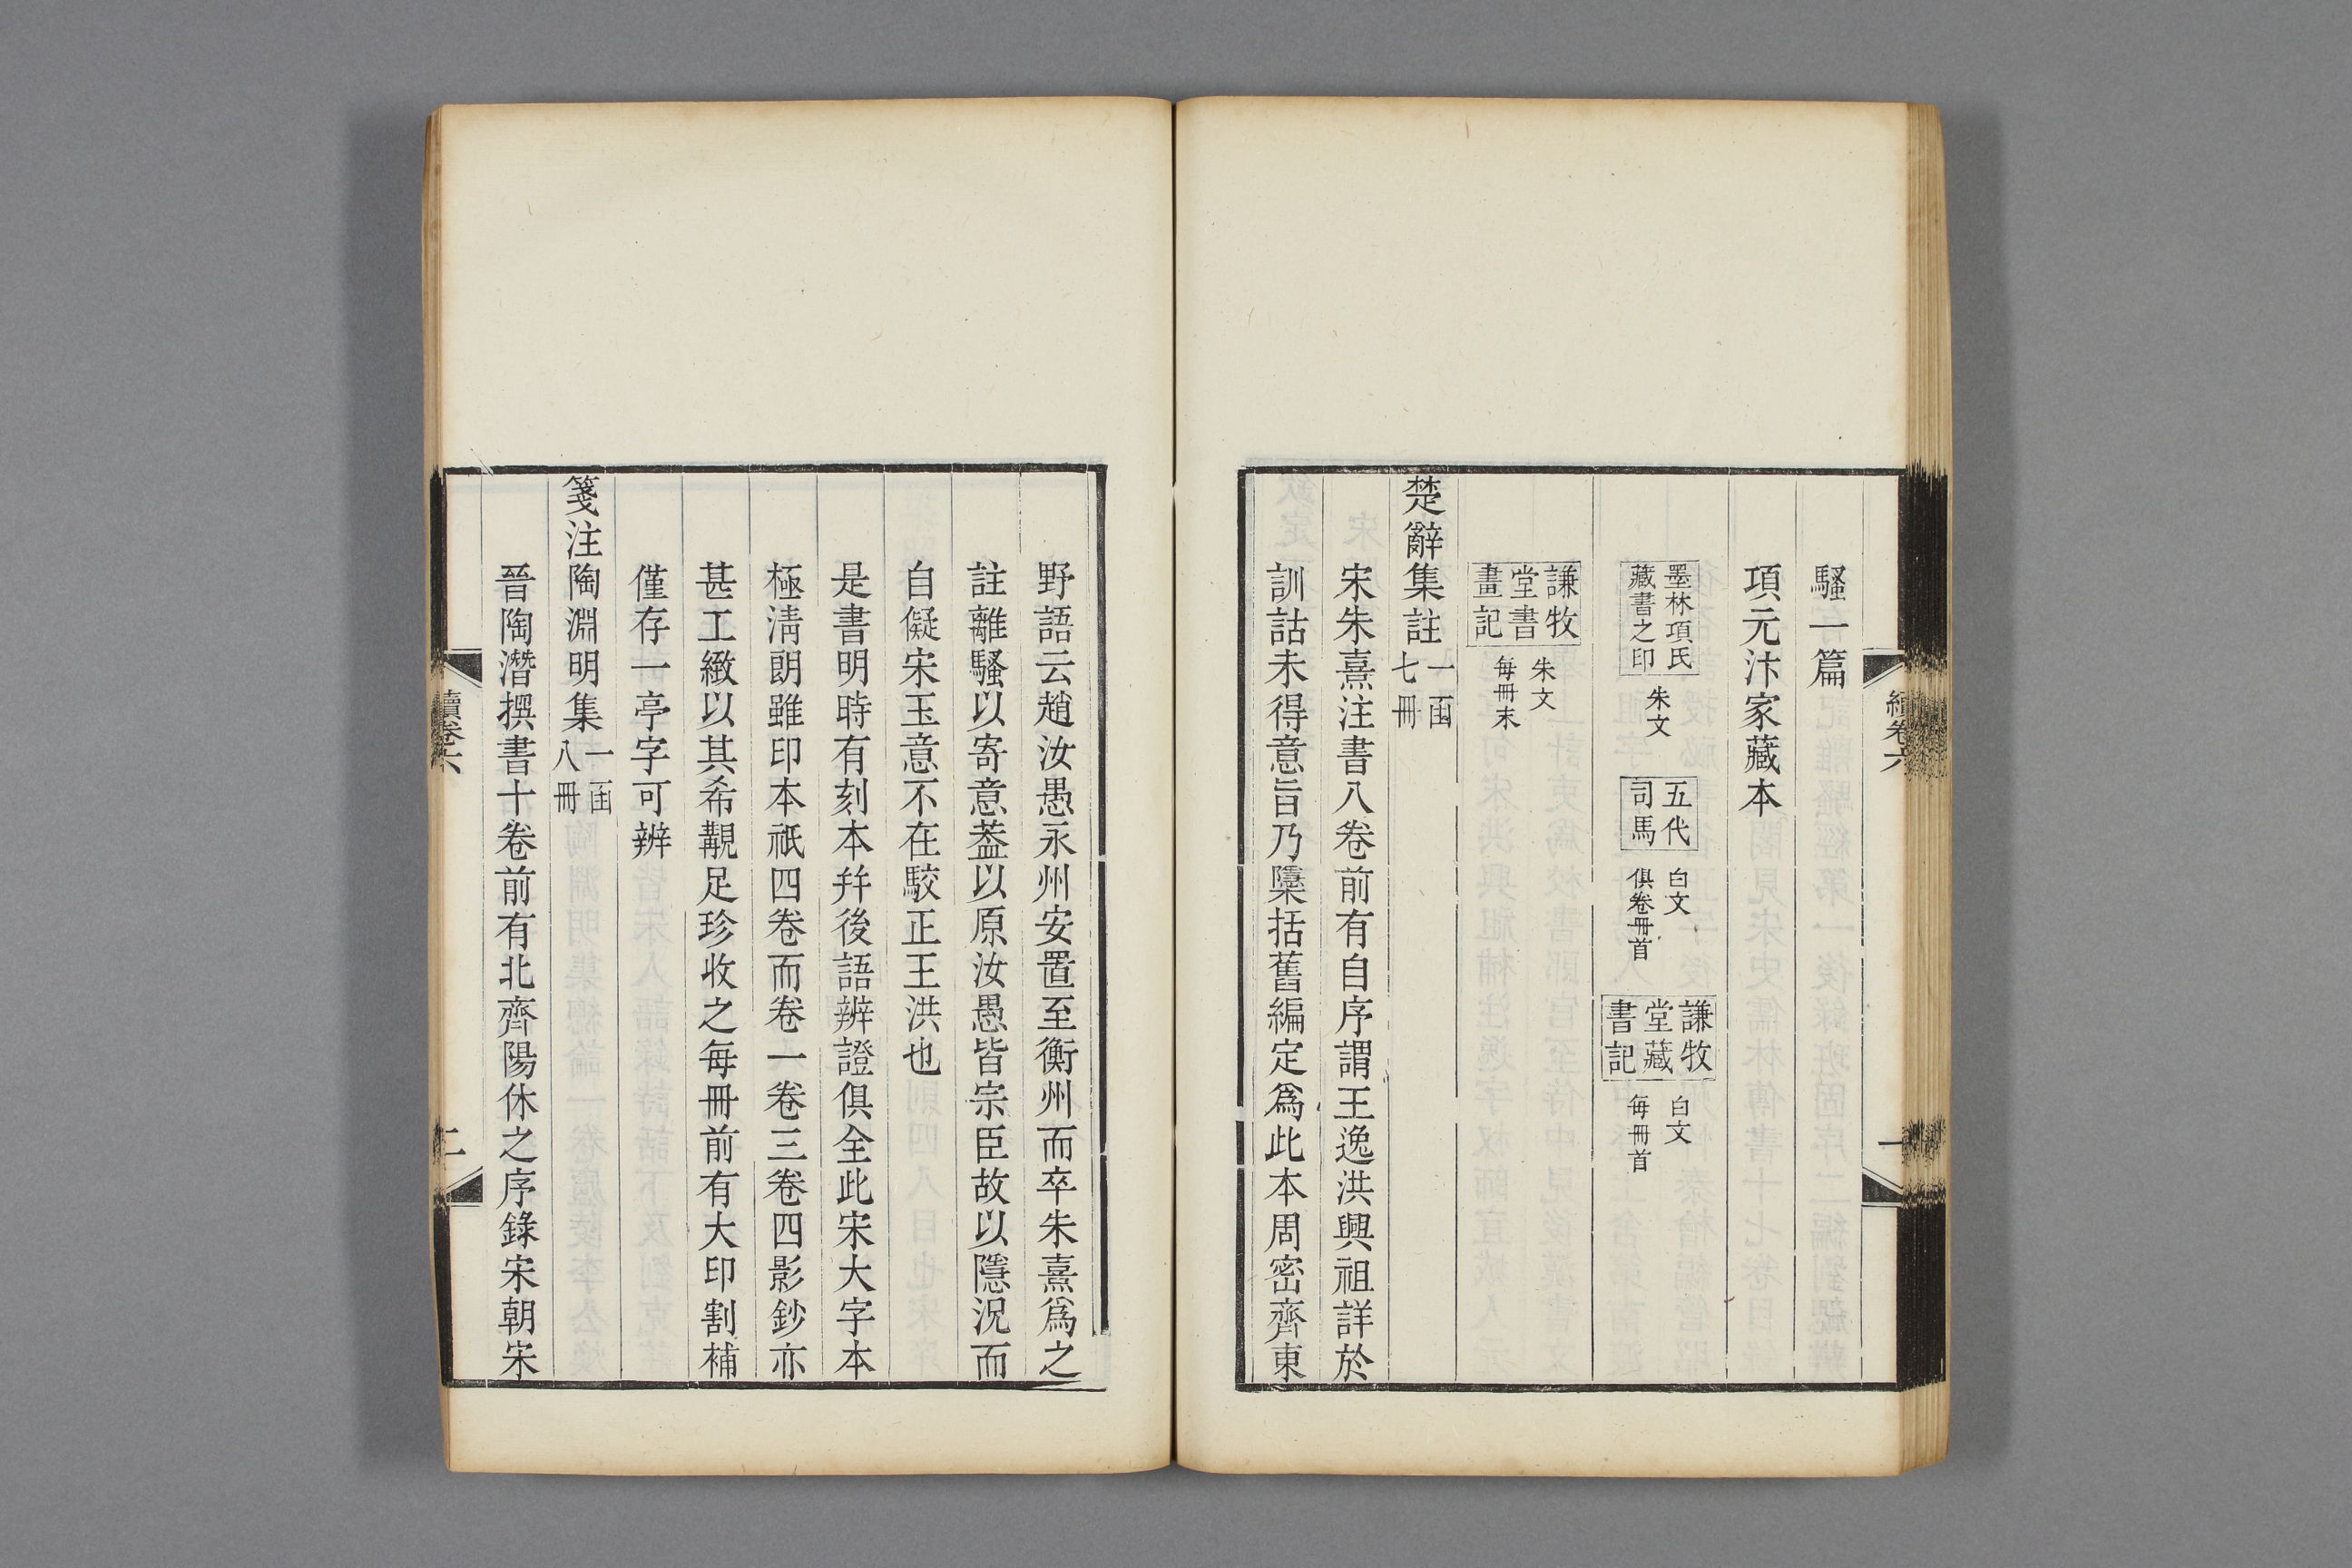 續卷六
一
騷一篇
項元汴家藏本
墨林項氏
藏書之印
朱文
五代
司馬
白文
俱卷冊首
謙牧
堂藏
書記
白文
每冊首
謙牧
堂書
畫記
朱文
每冊末
楚辭集註
一函
七冊
宋朱熹注書八卷前有自序謂王逸洪興祖詳於
訓詁未得意旨乃檃括舊編定爲此本周密齊東
野語云趙汝愚永州安置至衡州而卒朱熹爲之
註離騷以寄意葢以原汝愚皆宗臣故以隱況而
自儗宋玉意不在駮正王洪也
是書明時有刻本幷後語辨證俱全此宋大字本
極淸朗雖印本祇四卷而卷一卷三卷四影鈔亦
甚工緻以其希覯足珍收之每冊前有大印割補
僅存一亭字可辨
箋注陶淵明集
一函
八冊
晉陶潛撰書十卷前有北齊陽休之序錄宋朝宋
續卷六
二